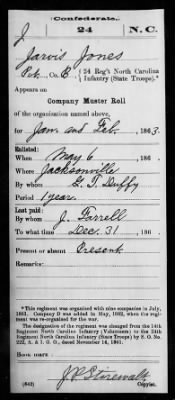 Confederate.
J 24 N. C.
Jarvis Jones
Pvt., Co. B, 24 Reg't North Carolina Infantry (State Troops).*
Appears on
Company Muster Roll
of the organization named above,
for Jan and Feb., 1863.
Enlisted:
When May 6, 186 .
Where Jacksonville
By whom G. T. Duffy
Period 1 year.
Last paid:
By whom J. Farrell
To what time Dec. 31, 186 .
Present or absent Present
Remarks:
*This regiment was organized with nine companies in July,
1861. Company D was added in May, 1862, when the regi-
ment was re-organized for the war.
The designation of the regiment was changed from the 14th
Regiment North Carolina Infantry (Volunteers) to the 24th
Regiment North Carolina Infantry (State Troops) by S. O. No.
222, A. I. G. O., dated November 14, 1861.
Book mark:
(642) J P Stirewalt
Copyist.